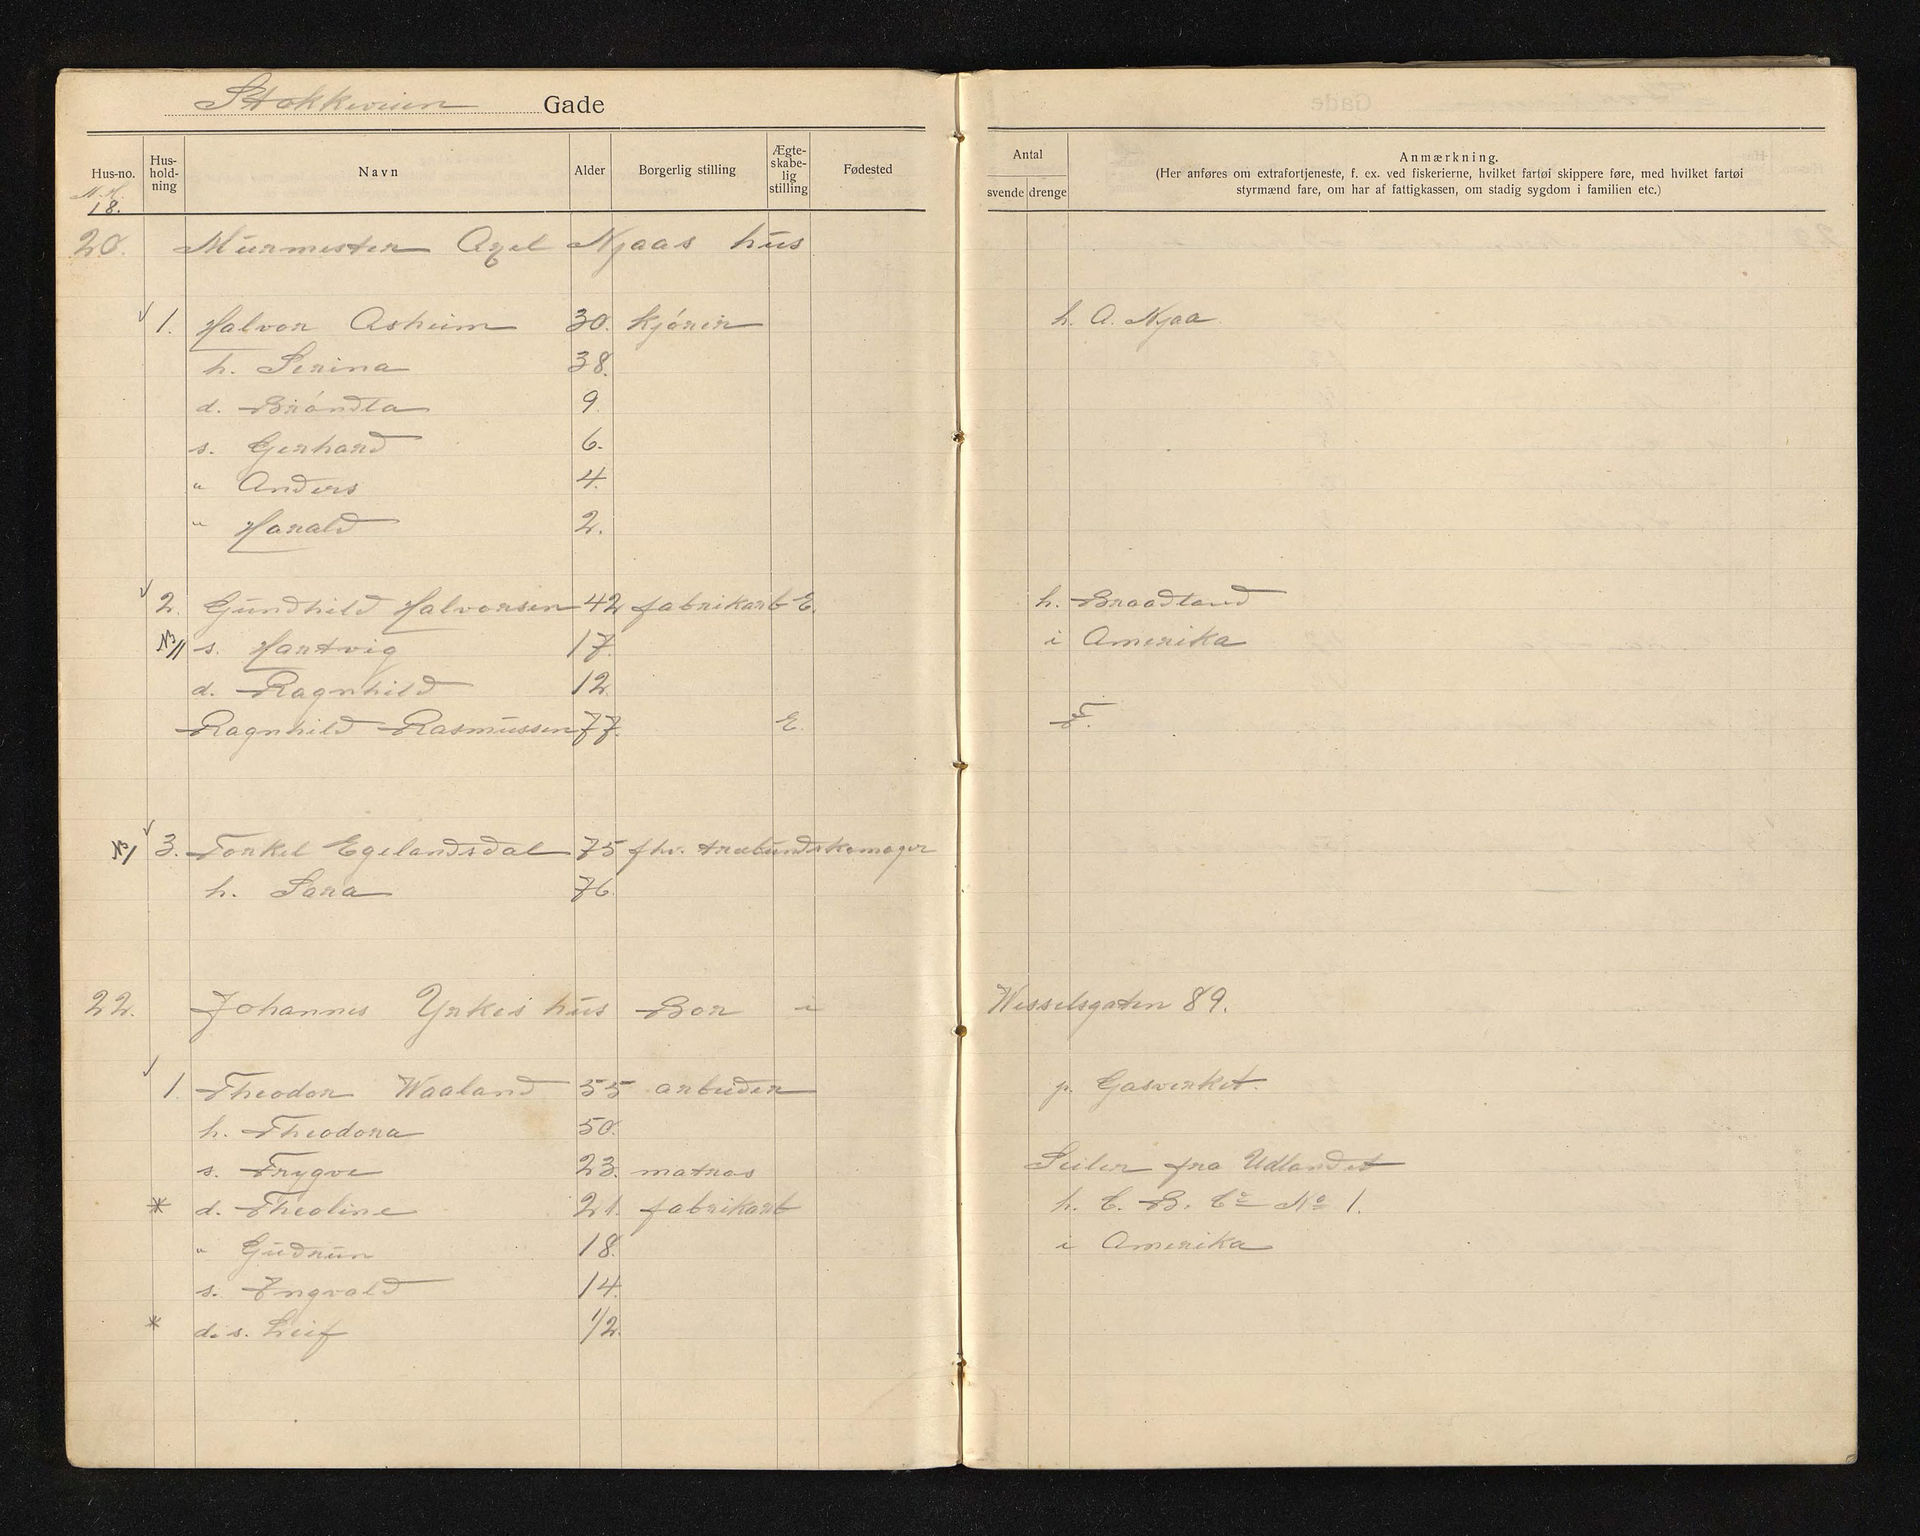 Stokkeveien Gade
Hus-no. Hus-hold-ning Navn Alder Borgerlig stilling Ægte-skabe-lig stilling Fødested Antal svende drenge Anmærkning.
(Her anføres om extrafortjeneste, f. ex. ved fiskerierne, hvilket fartøi skippere føre, med hvilket fartøi
styrmænd fare, om har af fattigkassen, om stadig sygdom i familien etc.)
18.
20. Murmester Axel Njaas hus
1. Halvor Asheim 30. kjører h. A. Njaa
h. Serina 38.
d. Brøndta 9.
s. Gerhard 6.
" Anders 4.
" Harald 2.
2. Gundhild Halvorsen 42 fabrikarb E. h. Braadland
s. Hartvig 17. i Amerika
d. Ragnhild 12
Ragnhild Rasmussen 77. E. F.
3. Torkel Egelandsdal 75 fhv. træbundskomager
h. Sara 76.
22. Johannes Yrkes hus Bor i Wesselsgaten 89.
1. Theodor Waaland 55 arbeider p. Gasverket.
h. Theodora 50.
s. Trygve 23. matros Seiler fra Udlandet
* d. Theoline 21. fabrikarb h. C. B. Co No 1.
" Gudrun 18. i Amerika
s. Ingvald 14.
* d. s. Leif 1/2.